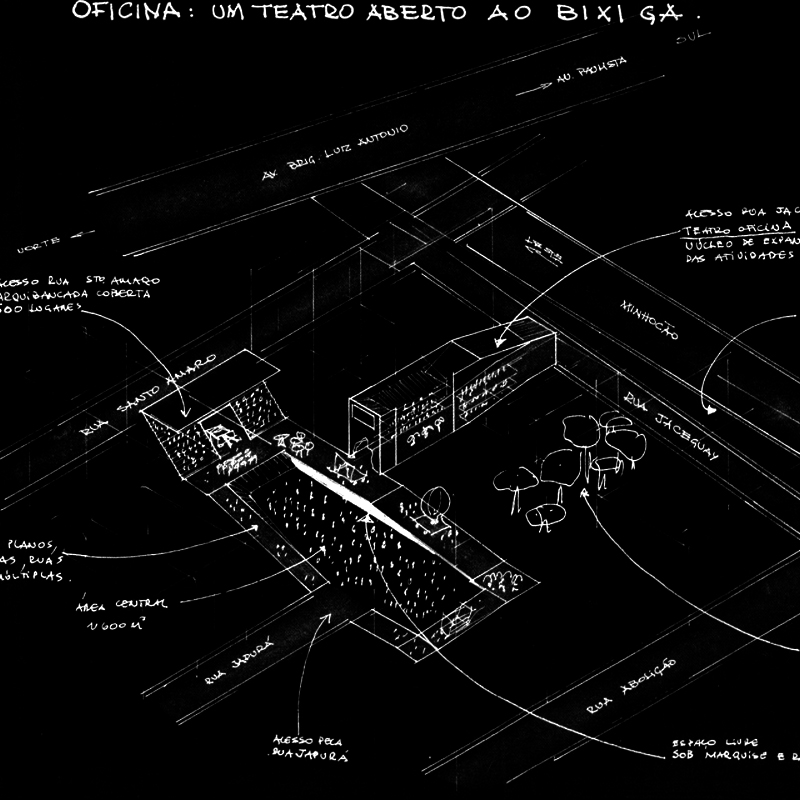 OFICINA: UM TEATRO ABERTO AO BIXIGA.
SUL
AV. PAULISTA
AV. BRIG. LUIZ ANTONIO
NORTE
ACESSO RUA JAC
TEATRO OFICINA
NÚCLEO DE EXPAN
DAS ATIVIDADES
CESSO RUA STO. AMARO
ARQUIBANCADA COBERTA
500 LUGARES
MINHOCÃO
RUA SANTO AMARO
RUA JACEGUAY
PLANOS,
AS RUAS
MÚLTIPLAS.
ÁREA CENTRAL
N 600 M²
RUA JAPURÁ
RUA ABOLIÇÃO
ACESSO PELA
RUA JAPURÁ
ESPAÇO LIVRE
SOB MARQUISE E R